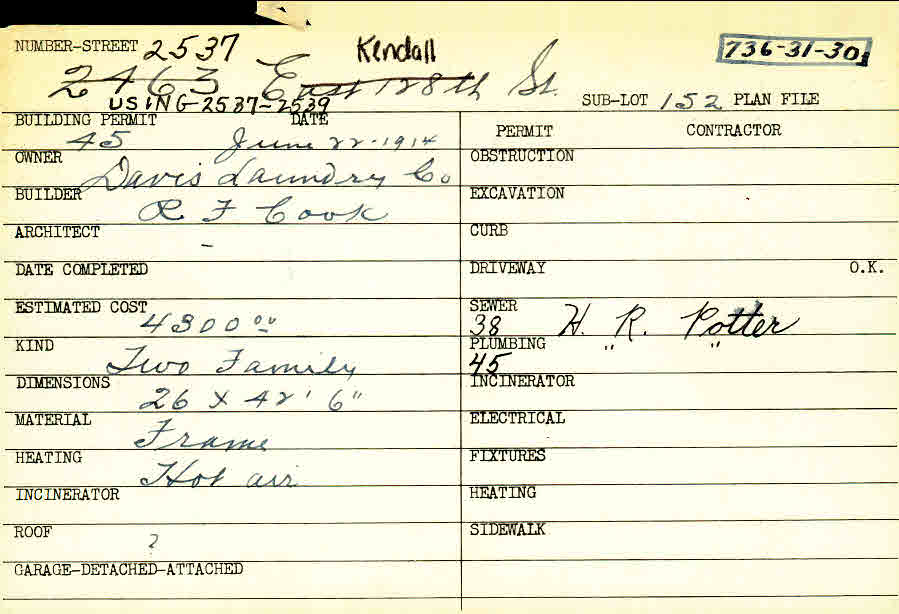 NUMBER-STREET 2537 Kendall 736-31-30
2463 East 128th St.
USING-2537-2539 SUB-LOT 152 PLAN FILE
BUILDING PERMIT DATE PERMIT CONTRACTOR
45 June 22-1914
OWNER Davis Laundry Co OBSTRUCTION
BUILDER R F Cook EXCAVATION
ARCHITECT - CURB
DATE COMPLETED DRIVEWAY O.K.
ESTIMATED COST 4300 00 SEWER
38 H. R. Potter
KIND Two Family PLUMBING " "
45
DIMENSIONS 26 x 42' 6" INCINERATOR
MATERIAL Frame ELECTRICAL
HEATING Hot air FIXTURES
INCINERATOR HEATING
ROOF ? SIDEWALK
GARAGE-DETACHED-ATTACHED